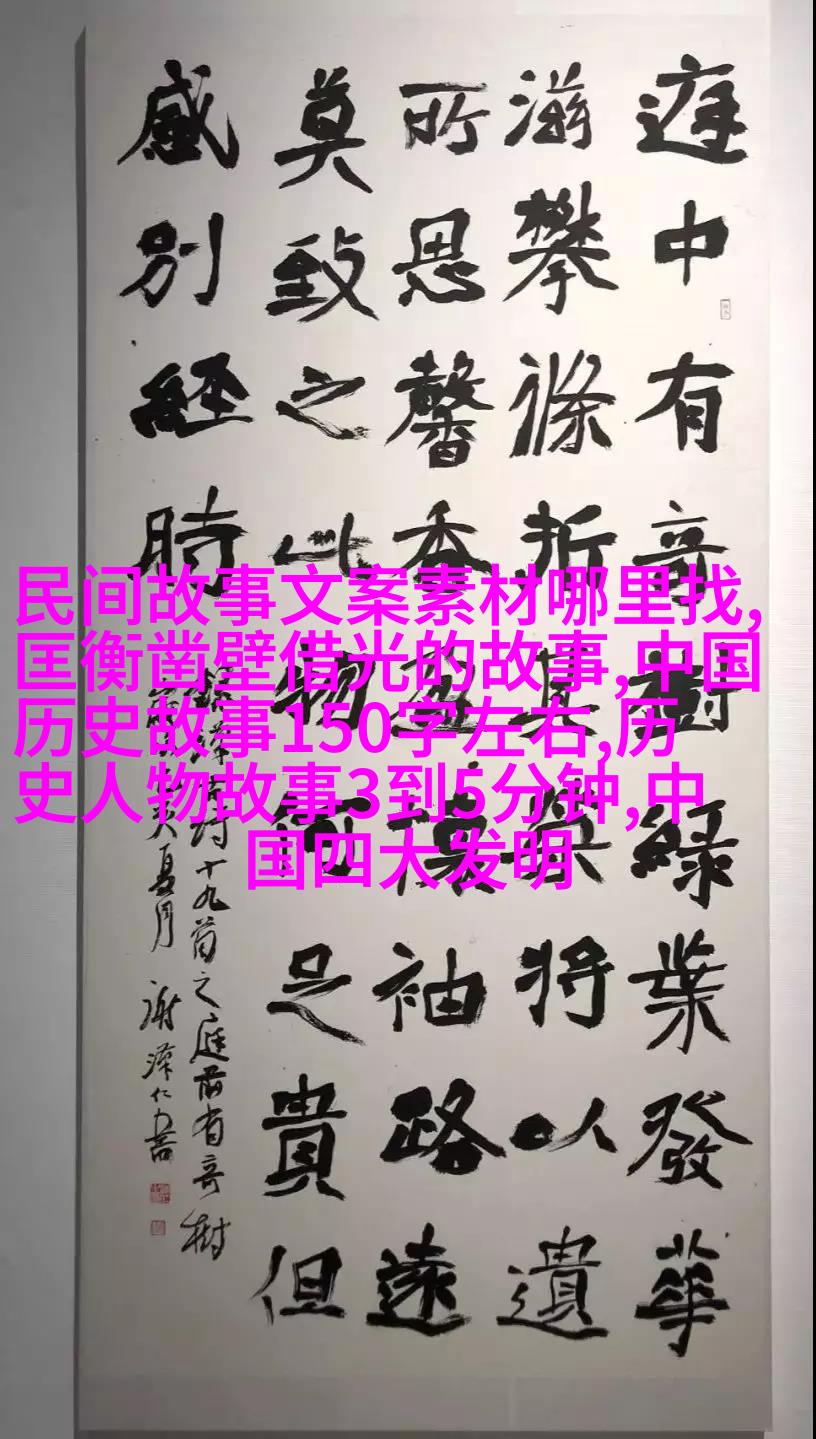 庭中有奇樹綠葉發華
滋攀條折其榮將以遺
所思馨香盈懷袖路遠
莫致之此物何足貴但
感別經時
十九首之庭前有奇樹
夏月 謝澤仁書
民间故事文案素材哪里找,
匡衡凿壁借光的故事,中国
历史故事150字左右,历
史人物故事3到5分钟,中
国四大发明